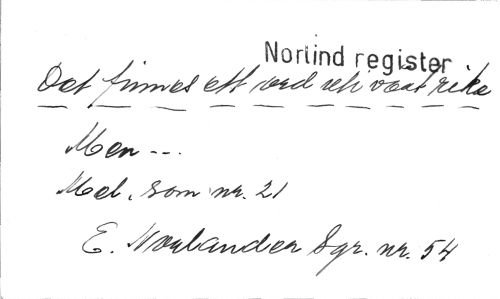 Norlind register
Det finnes ett ord uti vårt rike
Men ---
Mel. som nr. 21
E. Norlander Sgr. nr. 54